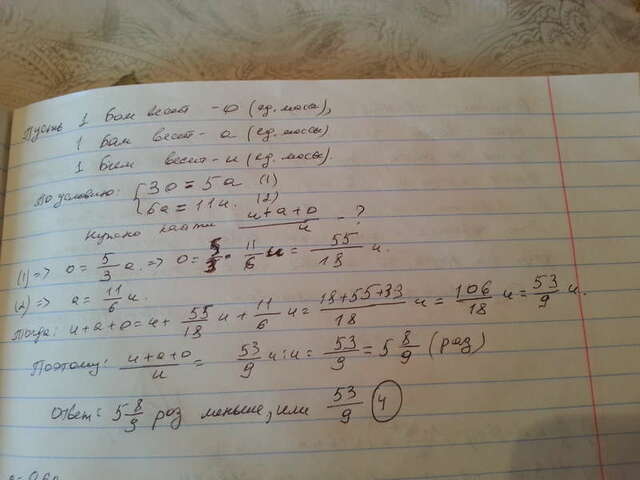 Пусть 1 Бом весит - о (ед. массы),
1 Бам весит - а (ед. массы)
1 Бим весит - и (ед. массы).
По условию: { 3о = 5а (1)
6а = 11и. (2)
Нужно найти (и+а+о)/и - ?
(1) => о = 5/3 а. => о = 5/3 · 11/6 и = 55/18 и.
(2) => а = 11/6 и.
Тогда: и+а+о = и + 55/18 и + 11/6 и = (18+55+33)/18 и = 106/18 и = 53/9 и.
Поэтому: (и+а+о)/и = 53/9 и : и = 53/9 = 5 8/9 (раз)
Ответ: 5 8/9 раз меньше, или 53/9 (4)